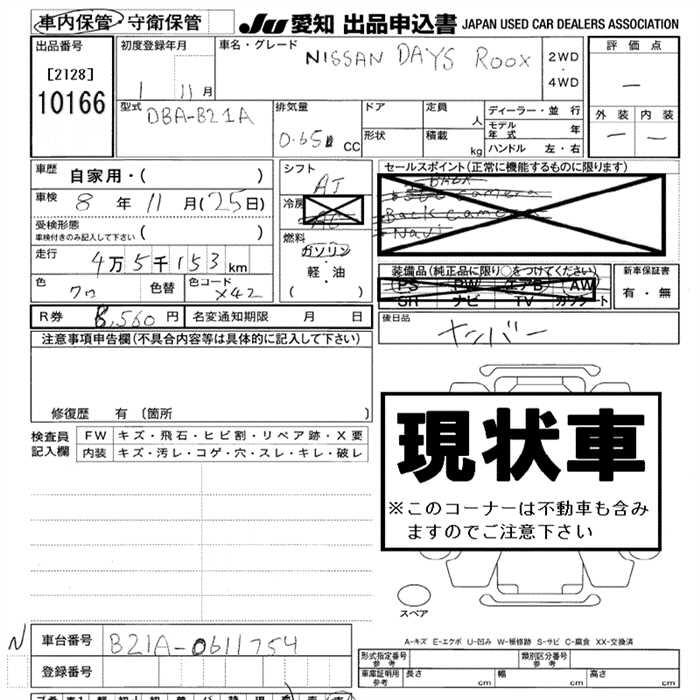 車内保管・守衛保管
JU 愛知 出品申込書 JAPAN USED CAR DEALERS ASSOCIATION
出品番号
[2128]
10166
初度登録年月
1 11月
車名・グレード
NISSAN DAYS ROOX
2WD
・
4WD
評価点
―
外装 内装
― ―
型式
DBA-B21A
排気量
0.65 CC
ドア
形状
定員 人
積載 kg
ディーラー・並行
モデル年式 年
ハンドル 左・右
車歴
自家用・( )
車検
8 年 11 月(25日)
受検形態
車検付きのみ記入して下さい ( )
走行
4万5千153km
色 クロ 色替 色コード X42
シフト
AT
冷房
AC
燃料
ガソリン
・
軽・油
( )
セールスポイント(正常に機能するものに限ります)
Back camera
Navi
装備品(純正品に限り○をつけてください)
PS PW エアB AW
SH ナビ TV カワシート
新車保証書
有・無
R券 8,560 円 名変通知期限 月 日
後日品
ナンバー
注意事項申告欄(不具合内容等は具体的に記入して下さい)
修復歴 有 〔箇所 〕
検査員
記入欄
FW キズ・飛石・ヒビ割・リペア跡・X要
内装 キズ・汚レ・コゲ・穴・スレ・キレ・破レ
現状車
※このコーナーは不動車も含み
ますのでご注意下さい
スペア
A-キズ E-エクボ U-凹み W-補修跡 S-サビ C-腐食 XX-交換済
N 車台番号 B21A-0611754
登録番号
形式指定番号
参考
類別区分番号
参考
車庫証明用
参考
長さ cm 幅 cm 高さ cm